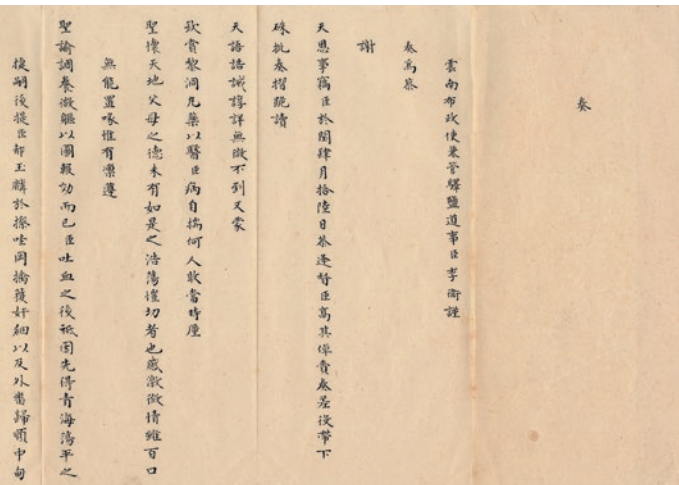 奏
雲南布政使兼管驛鹽道事臣李衛謹
奏為恭
謝
天恩事竊臣於閏肆月拾陸日恭逢督臣高其倬賫奏差役帶下
硃批奏摺跪讀
天語誥誡諄詳無微不到又蒙
欽賞黎洞丸藥以醫臣病自揣何人敢當特厪
聖懷天地父母之德未有如是之浩蕩懽切者也感激微情雖百口
無能置喙惟有凛遵
聖諭調養微軀以圖報効而已臣吐血之後祗因先得青海蕩平之
捷嗣後提臣郝玉麟於擦哇岡擒獲奸細以及外番歸順中甸